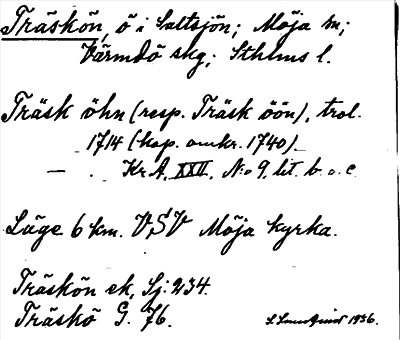 Träskön, ö i Saltsjön; Möja sn;
Värmdö skg; Sthlms l.
Träsk öhn (resp. Träsk öön), trol.
1714 (kop. omkr. 1740).
— . Kr A, XXII, N:o 9, lit. b. o. c.
Läge 6 km. VSV Möja kyrka.
Träskön ek, Sj. 234.
Träskö G. 76.
1936.